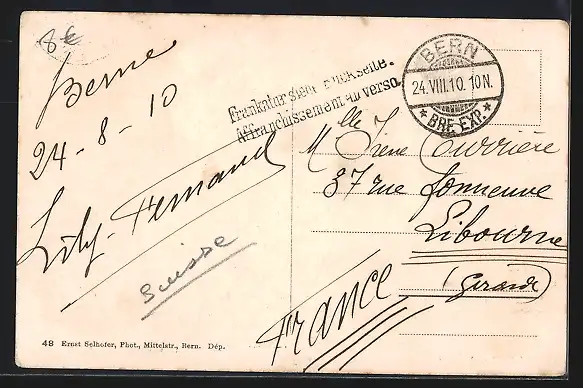 8€
Berne
24-8-10
Lily-Fernand
Suisse
48 Ernst Selhofer, Phot., Mittelstr., Bern. Dép.
Frankatur siehe Rückseite.
Affranchissement au verso.
BERN
24.VIII.10. 10N.
* BRF. EXP. *
Mlle Irène Courrière
37 rue Fonneuve
Libourne
(Gironde)
France